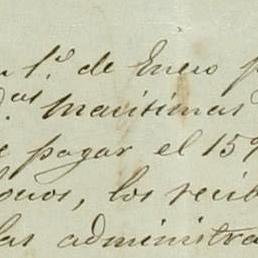 1.º de Enero p
d.as maritimas
e pagar el 15
onos, los recib
las administra